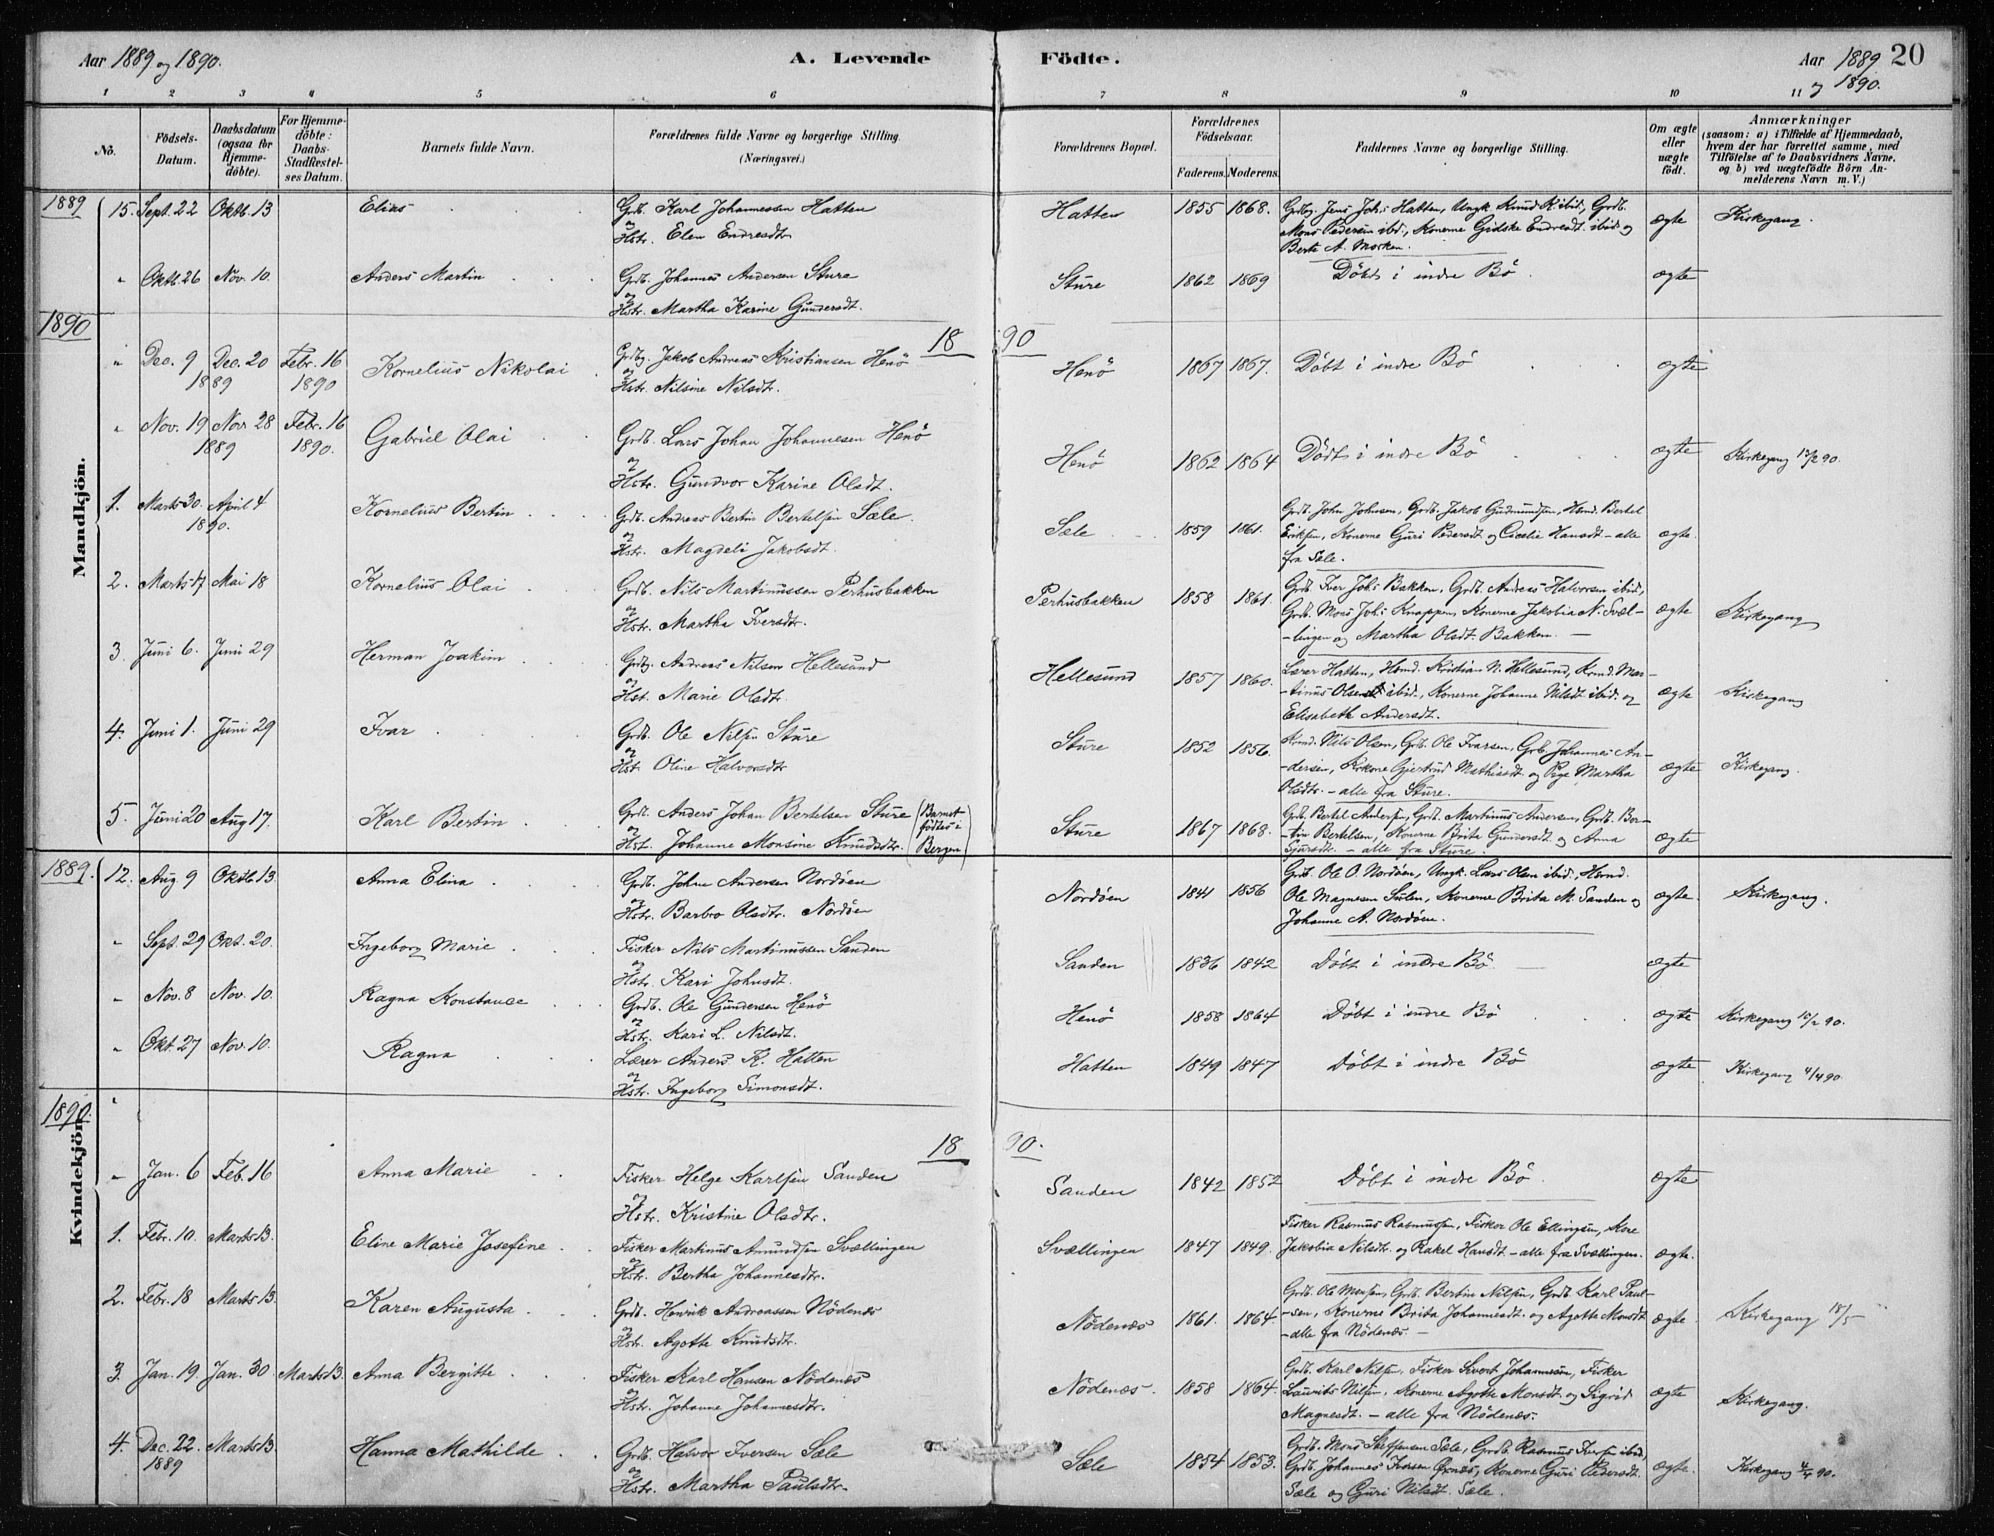 Aar 1889 og 1890.
A. Levende Födte.
Aar 1889 og 1890.
20
1 2 3 4 5 6 7 8 9 10 11
No.
Födsels-Datum.
Daabsdatum (ogsaa for Hjemme-döbte).
For Hjemme-döbte: Daabs-Stadfæstel-ses Datum.
Barnets fulde Navn.
Forældrenes fulde Navne og borgerlige Stilling. (Næringsvei.)
Forældrenes Bopæl.
Forældrenes Födselsaar.
Faderens. Moderens.
Faddernes Navne og borgerlige Stilling.
Om ægte eller uægte födt.
Anmærkninger
(saasom: a) i Tilfælde af Hjemmedaab, hvem der har forrettet samme, med Tilföielse af to Daabsvidners Navne, og b) ved uægtefödte Börn An-melderens Navn m. V.)
Mandkjön.
1889
15. Sept. 22 Oktb. 13 Elias Grdb. Karl Johannessen Hatten og Hstr. Elen Endresdtr. Hatten 1855 1868. Grdbg. Jens Johs Hatten, Ungk. Knud K. ibid, Grdb. Mons Pedersen ibid., Konerne Gidske Endresdt. ibid. og Berte A. Morken. ægte Kirkegang.
" Oktb. 26 Nov. 10. Anders Martin Grdb. Johannes Andersen Sture og Hstr. Martha Karine Gundersdt. Sture 1862 1869 Döbt i indre Bö. ægte
1890
18 90
" Dec. 9 Dec. 20 1889 Febr. 16 1890 Kornelius Nikolai Grdbg. Jakob Andreas Kristiansen Henö og Hstr. Nilsine Nilsdt. Henö 1867 1867. Döbt i indre Bö ægte
" Nov. 19 Nov. 28 1889 Febr. 16 1890. Gabriel Olai Grdb. Lars Johan Johannesen Henö og Hstr. Gundvor Karine Olsdt. Henö 1862 1864 Döbt i indre Bö ægte Kirkegang 90.
1. Marts 30. April 4 1890. Kornelius Bertin Grdb. Andreas Bertin Bertelsen Sæle. og Hstr. Magdeli Jakobsdt. Sæle 1859 1861. Grdb. John Johnsen, Grdb. Jakob Gudmundsen, Hsmd. Bertel Eriksen, Konerne Guri Pedersdt. og Cicelie Hansdt. - alle fra Sæle. ægte.
2. Marts 17 Mai 18 Kornelius Olai Grdb. Nils Martinussen Perhusbakken og Hstr. Martha Iversdtr. Perhusbakken 1858 1861. Grdb. Iver Johs Bakken, Grdb. Andreas Halvorsen ibid, Grdb. Mons Johs Knappen, Konerne Jakobia N. Svællingen og Martha Olsdt. Bakken. ægte Kirkegang
3. Juni 6. Juni 29 Herman Joakim Grdbg. Andreas Nilsen Hellesund og Hst. Marie Olsdt. Hellesund 1857 1860. Lærer Hatten, Hsmd. Kristian N. Hellesund, Martinus Olsen ibid., Konerne Johanne Nilsdt. ibid. og Elisabeth Andersdt. ægte Kirkegang
4. Juni 1. Juni 29 Ivar Grdb. Ole Nilsen Sture og Hst. Oline Halvorsdtr. Sture 1852 1856. Nils Olsen, Grdb. Ole Ivarsen, Grb. Johannes Andersen, Gjertrud Mathiasdt. og Pige Martha Olsdtr. - alle fra Sture. ægte Kirkegang.
5. Juni 20 Aug. 17. Karl Bertin Grdb. Anders Johan Bertelsen Sture og Hst. Johanne Monsine Knudsdtr. (Barnet födtes i Bergen) Sture 1867 1868. Grb. Bertel Andersen, Grdb. Martinus Andersen, Grdb. Bertin Bertelsen, Konerne Brita Gundersdt. og Anna Sjursdtr. - alle fra Sture. ægte
Kvindekjön.
1889.
12. Aug 9 Oktb. 13. Anna Elina Grdb. John Andersen Nordöen og Hstr. Barbro Olsdtr. Nordöen Nordöen 1841 1856 Grdb. Ole O. Nordöen, Ungk. Lars Olsen ibid, Hsmd. Ole Magnesen Sulen, Konerne Brita M. Sanden og Johanne A. Nordöen. ægte. Kirkegang.
" Sept. 29 Okt. 20. Ingeborg Marie Fisker Nils Martinussen Sanden og Hstr. Kari Johnsdt. Sanden 1836 1842 Döbt i indre Bö ægte
" Nov. 8 Nov. 10. Ragna Konstance Grdb. Ole Gundersen Henö og Hstr. Kari L. Nilsdt. Henö 1858 1864 Döbt i indre Bö ægte Kirkegang 90.
" Okt. 27 Nov. 10. Ragna Lærer Anders K. Hatten og Hstr. Ingeborg Simonsdt. Hatten 1849 1847 Döbt i indre Bö ægte Kirkegang 4/4 90.
1890.
18 90.
" Jan. 6 Feb. 16 Anna Marie Fisker Helge Karlsen Sanden og Hstr. Kristine Olsdtr. Sanden 1842 1852 Döbt i indre Bö. ægte
1. Febr. 10. Marts 13. Eline Marie Josefine Fisker Martinus Amundsen Svællingen og Hstr. Bertha Johannesdtr. Svællingen 1847 1849. Fisker Rasmus Rasmussen, Fisker Ole Ellingsen, Kone Jakobia Nilsdtr. og Rakel Hansdt - alle fra Svællingen. ægte.
2. Febr. 18 Marts 13. Karen Augusta Grdb. Henrik Andreassen Nödenæs og Hstr. Agotte Knudsdtr. Nödenæs 1861. 1864. Grdb. Ole Monsen, Grdb. Bertin Nilsen, Grdb. Karl Paulsen, Konerne Brita Johannesdt. og Agotte Monsdt. - alle fra Nödenæs - ægte. Kirkegang 18/5
3. Jan. 19. Jan. 30 Marts 13. Anna Bergitte Fisker Karl Hansen Nödenæs og Hstr. Johanne Johannesdtr. Nödenæs. 1858 1864. Grdb. Karl Nilsen, Fisker Sivert Johannesen, Fisker Laurits Nilsen, Konerne Agotte Monsdt. og Sigrid Magnesdt. - alle fra Nödenæs. ægte Kirkegang.
4. Dec. 22. 1889 Marts 13. Hanna Mathilde Grdb. Halvor Iversen Sæle og Hstr. Martha Paulsdtr. Sæle 1854 1853. Grdb. Mons Steffensen Sæle, Grdb. Rasmus Iversen ibid, Grdb. Johannes Ivarsen, Konerne Guri Pedersdt. Sæle og Guri Nilsdt. Sæle. ægte. Kirkegang 90.